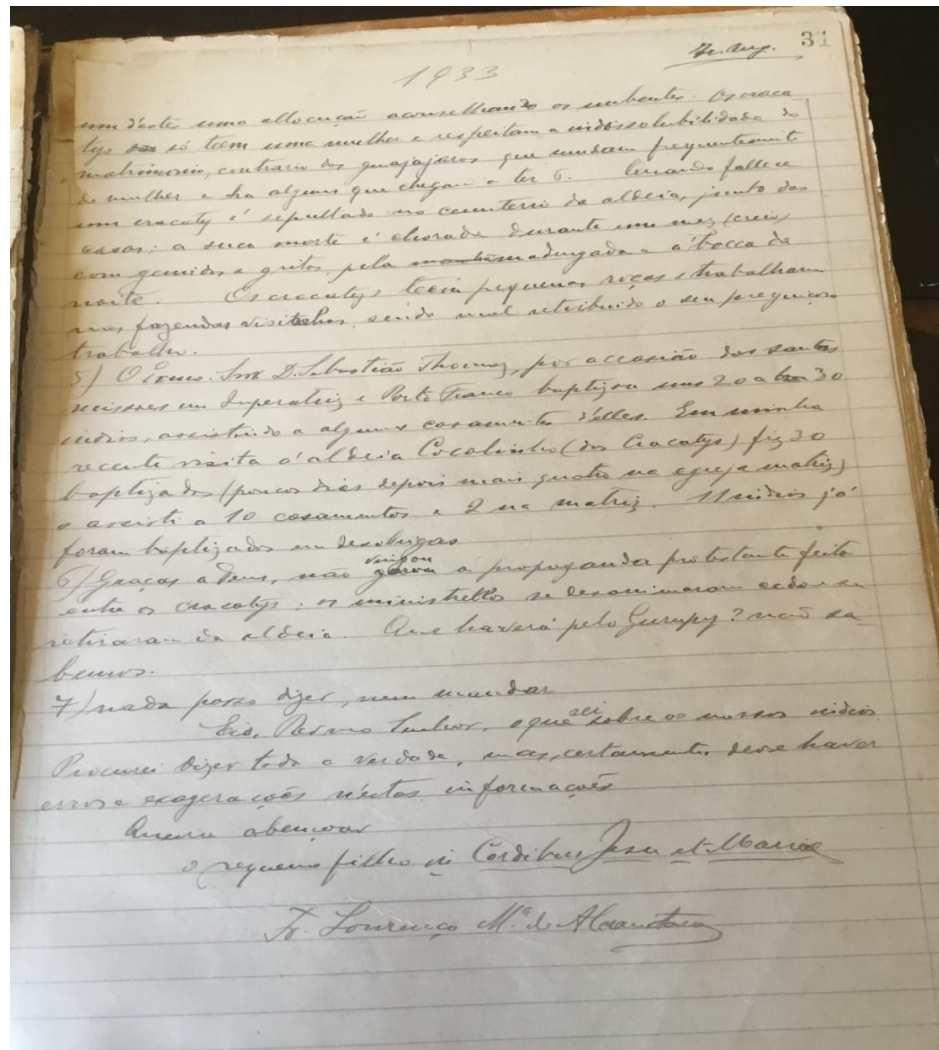 Fr. Aug. 31
1933
um déstes uma allocução aconselhando os nubentes. Os craca
tys só teem uma mulher e respeitam a indissolubilidade do
matrimonio, contrario dos guajajaras que mudam frequentement
de mulher e ha alguns que chegam a ter 6. Quando fallece
um cracaty é sepultado no cemiterio da aldeia, junto das
casas; a sua morte é chorada durante um mez (creio)
com gemidos e gritos, pela madrugada e á bocca da
noite. Os cracatys teem pequenas roças e trabalham
nas fazendas visinhas, sendo mal retribuido o seu preguiçoso
trabalho.
5) O Exmo. Snr D. Sebastião Thomaz, por accasião das santas
missões em Imperatriz e Porto Franco baptizou uns 20 a 30
indios, assistindo a alguns casamentos d'elles. Em minha
recente visita á aldeia Cocalinho (dos Cracatys) fiz 30
baptizados (poucos dias depois mais quatro na egreja matriz)
e assisti a 10 casamentos e 2 na matriz. 11 indios já
foram baptizados em desobrigas
6) Graças a Deus, não vingou a propaganda protestante feita
entre os cracatys: os ministrellos se desanimaram cedo e se
retiraram da aldeia. Que haverá pelo Gurupy? não sa
bemos.
7) nada posso dizer, nem mandar
Eis, Revmo Senhor, o que sei sobre os nossos indios.
Procurei dizer toda a verdade, mas, certamente, deve haver
erros e exagerações n'estas informações
Queira abençoar
o pequeno filho in Cordibus Jesu et Mariae
Fr. Lourenço Mª. de Alcantara